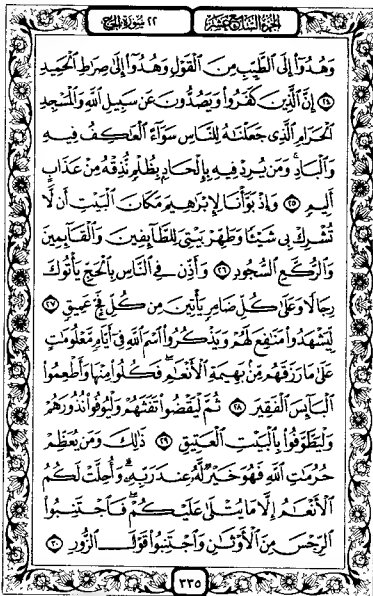 الجزء السابع عشر ٢٢ سورة الحج
وَهُدُوٓا۟ إِلَى ٱلطَّيِّبِ مِنَ ٱلْقَوْلِ وَهُدُوٓا۟ إِلَىٰ صِرَٰطِ ٱلْحَمِيدِ
٢٤ إِنَّ ٱلَّذِينَ كَفَرُوا۟ وَيَصُدُّونَ عَن سَبِيلِ ٱللَّهِ وَٱلْمَسْجِدِ
ٱلْحَرَامِ ٱلَّذِى جَعَلْنَٰهُ لِلنَّاسِ سَوَآءً ٱلْعَٰكِفُ فِيهِ
وَٱلْبَادِ ۚ وَمَن يُرِدْ فِيهِ بِإِلْحَادٍۭ بِظُلْمٍ نُّذِقْهُ مِنْ عَذَابٍ
أَلِيمٍ ٢٥ وَإِذْ بَوَّأْنَا لِإِبْرَٰهِيمَ مَكَانَ ٱلْبَيْتِ أَن لَّا
تُشْرِكْ بِى شَيْـًٔا وَطَهِّرْ بَيْتِىَ لِلطَّآئِفِينَ وَٱلْقَآئِمِينَ
وَٱلرُّكَّعِ ٱلسُّجُودِ ٢٦ وَأَذِّن فِى ٱلنَّاسِ بِٱلْحَجِّ يَأْتُوكَ
رِجَالًا وَعَلَىٰ كُلِّ ضَامِرٍ يَأْتِينَ مِن كُلِّ فَجٍّ عَمِيقٍ ٢٧
لِّيَشْهَدُوا۟ مَنَٰفِعَ لَهُمْ وَيَذْكُرُوا۟ ٱسْمَ ٱللَّهِ فِىٓ أَيَّامٍ مَّعْلُومَٰتٍ
عَلَىٰ مَا رَزَقَهُم مِّنۢ بَهِيمَةِ ٱلْأَنْعَٰمِ ۖ فَكُلُوا۟ مِنْهَا وَأَطْعِمُوا۟
ٱلْبَآئِسَ ٱلْفَقِيرَ ٢٨ ثُمَّ لْيَقْضُوا۟ تَفَثَهُمْ وَلْيُوفُوا۟ نُذُورَهُمْ
وَلْيَطَّوَّفُوا۟ بِٱلْبَيْتِ ٱلْعَتِيقِ ٢٩ ذَٰلِكَ وَمَن يُعَظِّمْ
حُرُمَٰتِ ٱللَّهِ فَهُوَ خَيْرٌ لَّهُۥ عِندَ رَبِّهِۦ ۗ وَأُحِلَّتْ لَكُمُ
ٱلْأَنْعَٰمُ إِلَّا مَا يُتْلَىٰ عَلَيْكُمْ ۖ فَٱجْتَنِبُوا۟
ٱلرِّجْسَ مِنَ ٱلْأَوْثَٰنِ وَٱجْتَنِبُوا۟ قَوْلَ ٱلزُّورِ ٣٠
٣٣٥